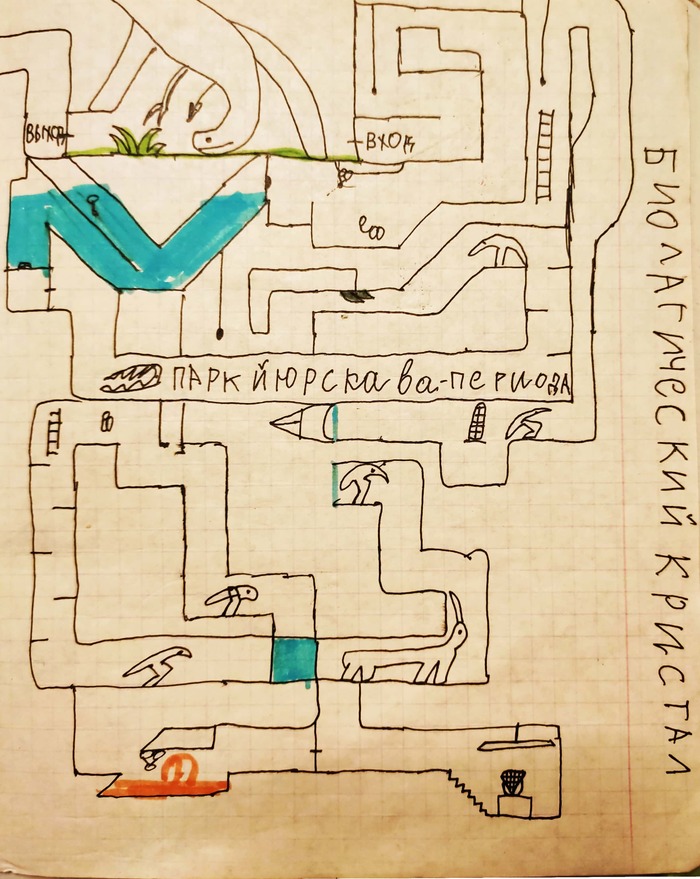 ВЫХОД
ВХОД
ПАРК ЙЮРСКА ва-пЕРИОДА
БИОЛАГИЧЕСКИЙ КРИСТАЛ